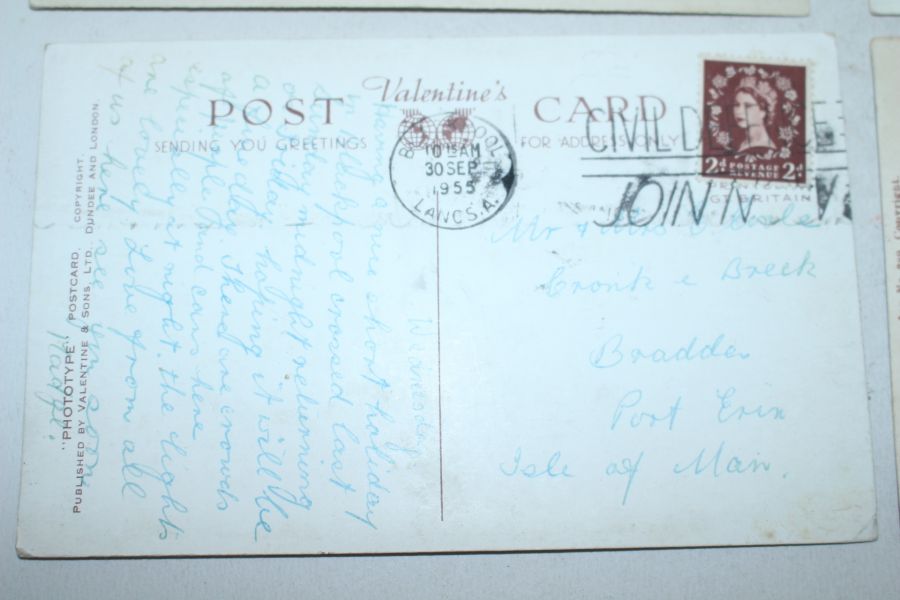 POST Valentine's CARD
SENDING YOU GREETINGS
FOR ADDRESSING
2d POSTAGE REVENUE 2d
10 15 AM
30 SEP
1955
LANCS. A.
JOIN
GT. BRITAIN
Mr & Mrs
Cronk e Breck
Bradda
Port Erin
Isle of Man.
We are
having a nice short holiday
in Blackpool crossed last
Sunday midnight returning
on Friday hoping it will be
a nice day. There are crowds
of people and cars here
especially at night. the lights
are lovely. Love from all
of us here see you soon
Madge.
"PHOTOTYPE" POSTCARD. COPYRIGHT.
PUBLISHED BY VALENTINE & SONS, LTD. DUNDEE AND LONDON.